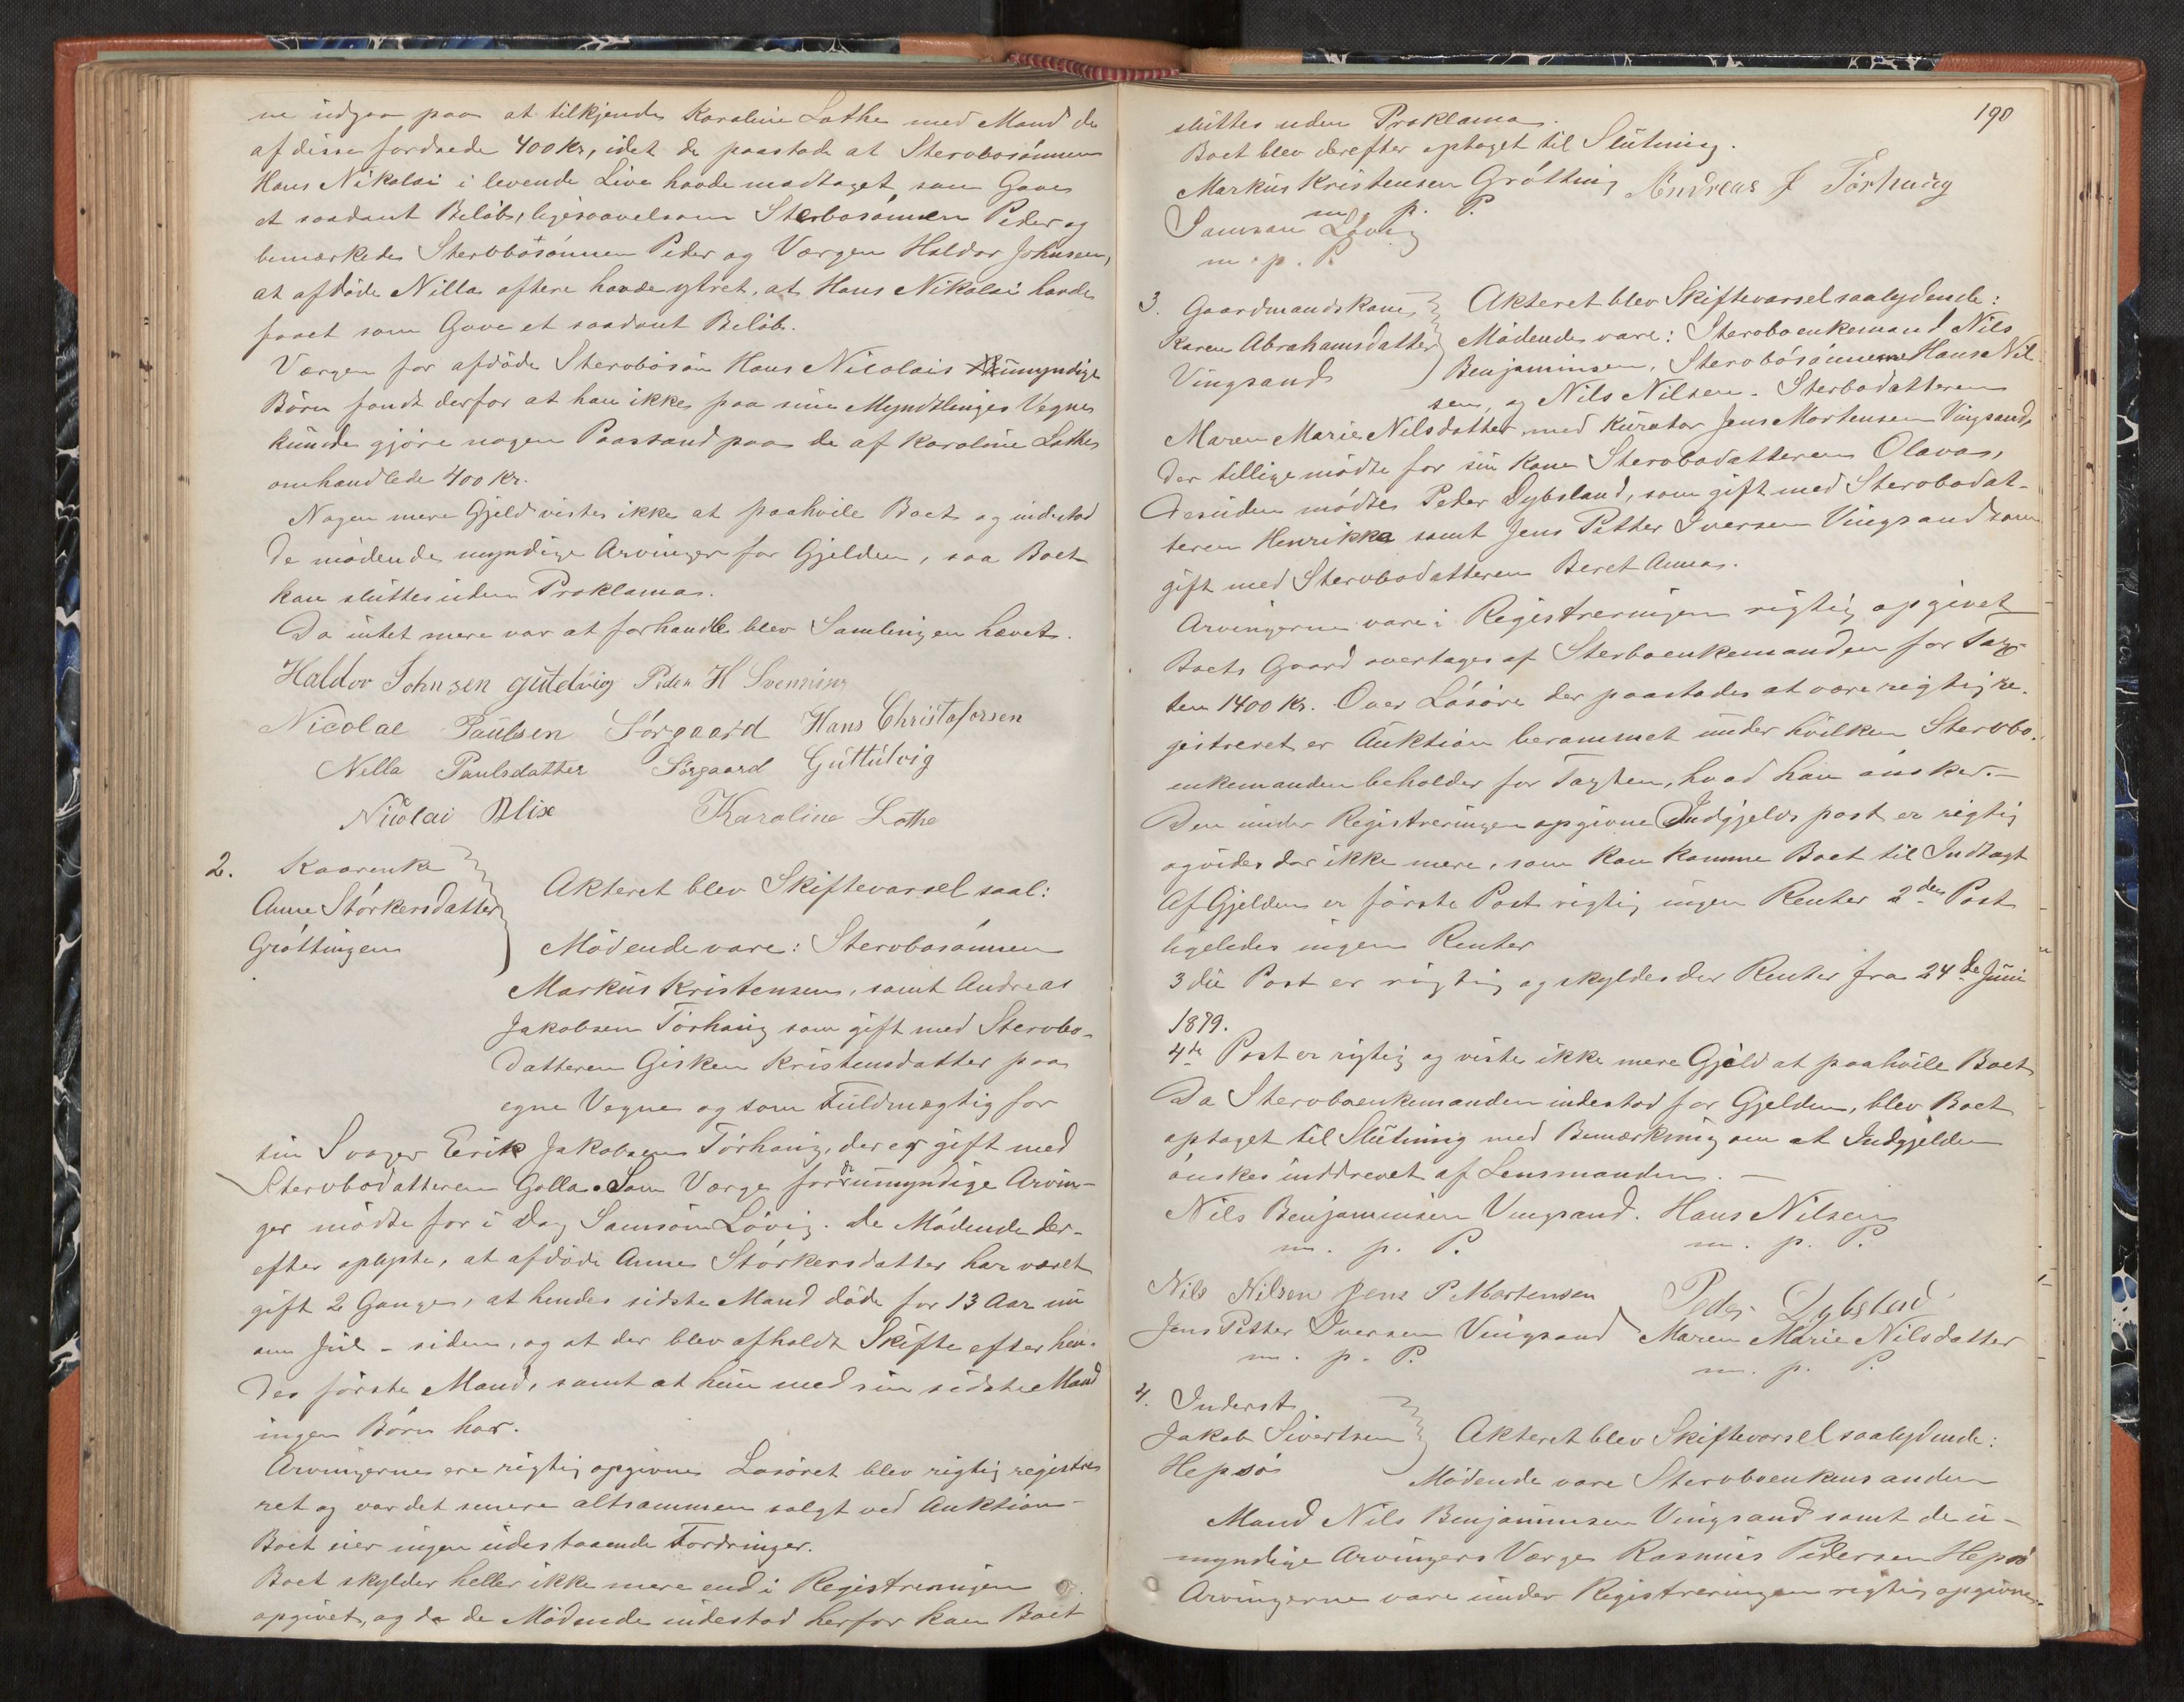 ne udgaa paa at tilkjende Karoline Lothe med Mand de
af disse fordrede 400 Kr, idet de paastode at Stervbosönnen
Hans Nikolai i levende Live havde modtaget som Gave
et saadant Beløb, ligesaavelsom Sterbosönnen Peder og
bemærkede Stervbösönnen Peder og Værgen Haldor Johnsen,
at afdöde Nilla oftere havde ytret, at Hans Nikolai havde
faaet som Gave et saadant Belöb.
Værgen for afdöde Stervbösön Hans Nicolais umyndige
Börn fandt derfor at han ikke paa sine Myndtlinges Vegne
kunde gjöre nogen Paastand paa de af Karoline Lothe
omhandlede 400 Kr.
Nogen mere Gjeld vistes ikke at paahvile Boet og indestod
de mödende myndige Arvinger for Gjelden, saa Boet
kan sluttes uden Proklama.
Da intet mere var at forhandle blev Samlingen hævet.
Haldor Johnsen gutelvig Peder H Svenning
Nicolae Paulsen Sörgaard Hans Christofersen
Nella Paulsdatter Sörgaard Guttülvig
Nicolai Blix Karoline Lothe
2. Kaarenke
Anne Störkersdatter Akteret blev Skiftevarsel saal:
Gröttingen Mödende vare: Stervbosönnen
Markus Kristensen, samt Andreas
Jakobsen Törhaug som gift med Stervbo-
datteren Gisken Kristensdatter paa
egne Vegne og som Fuldmægtig for
sin Svoger Erik Jakobsen Törhaug, der er gift med
Stervbodatteren Golla. Som Værge for de umyndige Arvin-
ger mödte for i Dag Samson Lövig. De Mödende der-
efter oplyste, at afdöde Anne Störkersdatter har været
gift 2 Gange, at hendes sidste Mand döde for 13 Aar nu
om Jul - siden, og at der blev afholdt Skifte efter hen-
des förste Mand, samt at hun med sin sidste Mand
ingen Börn har.
Arvingerne ere rigtig opgivne Lösöret blev rigtig registre
ret og var det senere altsammen solgt ved Auktion-
Boet eier ingen udestaaende Fordringer.
Boet skylder heller ikke mere end i Registreringen
opgivet, og da de Mödende indestod herfor kan Boet
190
sluttes uden Proklama.
Boet blev derefter optaget til Slutning.
Markus Kristensen Grötting Andreas J Törhaug
m. p. P.
Samson Lövig
m. p. P.
3. Gaardmandskone Akteret blev Skiftevarsel saalydende:
Karen Abrahamsdatter Mödende vare: Stervboenkemand Nils
Vingsand Benjaminsen, Stervbösönnerne Hans Nil-
sen, og Nils Nilsen. Sterbodatteren
Maren Marie Nilsdatter med Kurator Jens Mortensen Vingsand,
der tillige mödte for sin Kone Stervbodatteren Olava,
desuden mödte Peder Dybsland, som gift med Stervbodat-
teren Henrikke samt Jens Petter Iversen Vingsand som
gift med Stervbodatteren Beret Anna.
Arvingerne vare i Registreringen rigtig opgivet
Boets Gaard overtages af Sterboenkemanden for Tax-
ten 1400 Kr. Over Lösöre der paastodes at være rigtig re-
gistreret er Auktion berammet under hvilken Stervbo-
enkemanden beholder for Taxten, hvad han önsker.—
Den under Registreringen opgivne Indgjelds post er rigtig
og vides der ikke mere, som kan komme Boet til Indtægt
Af Gjelden er förste Post rigtig ingen Renter 2den Post
ligeledes ingen Renter
3die Post er rigtig og skyldes der Renter fra 24de Juni
1879.
4de Post er rigtig og viste ikke mere Gjeld at paahvile Boet
Da Stervboenkemanden indestod for Gjelden, blev Boet
optaget til Slutning med Bemærkning om at Indgjelden
önskes inddrevet af Lensmanden. —
Nils Benjaminsen Vingsand. Hans Nilsen
m. p. P. m. p. P.
Nils Nilsen Jens P. Mortensen Peder Dybslad
Jens Petter Iversen Vingsand Maren Marie Nilsdatter
m. p. P. m. p. P.
4. Inderst
Jakob Sivertsen Akteret blev Skiftevarsel saalydende:
Hepsö Mödende vare Stervboenkens anden
Mand Nils Benjaminsen Vingsand samt de u-
myndige Arvingers Værge Rasmus Pedersen Hepsö
Arvingerne vare under Registreringen rigtig opgivne.